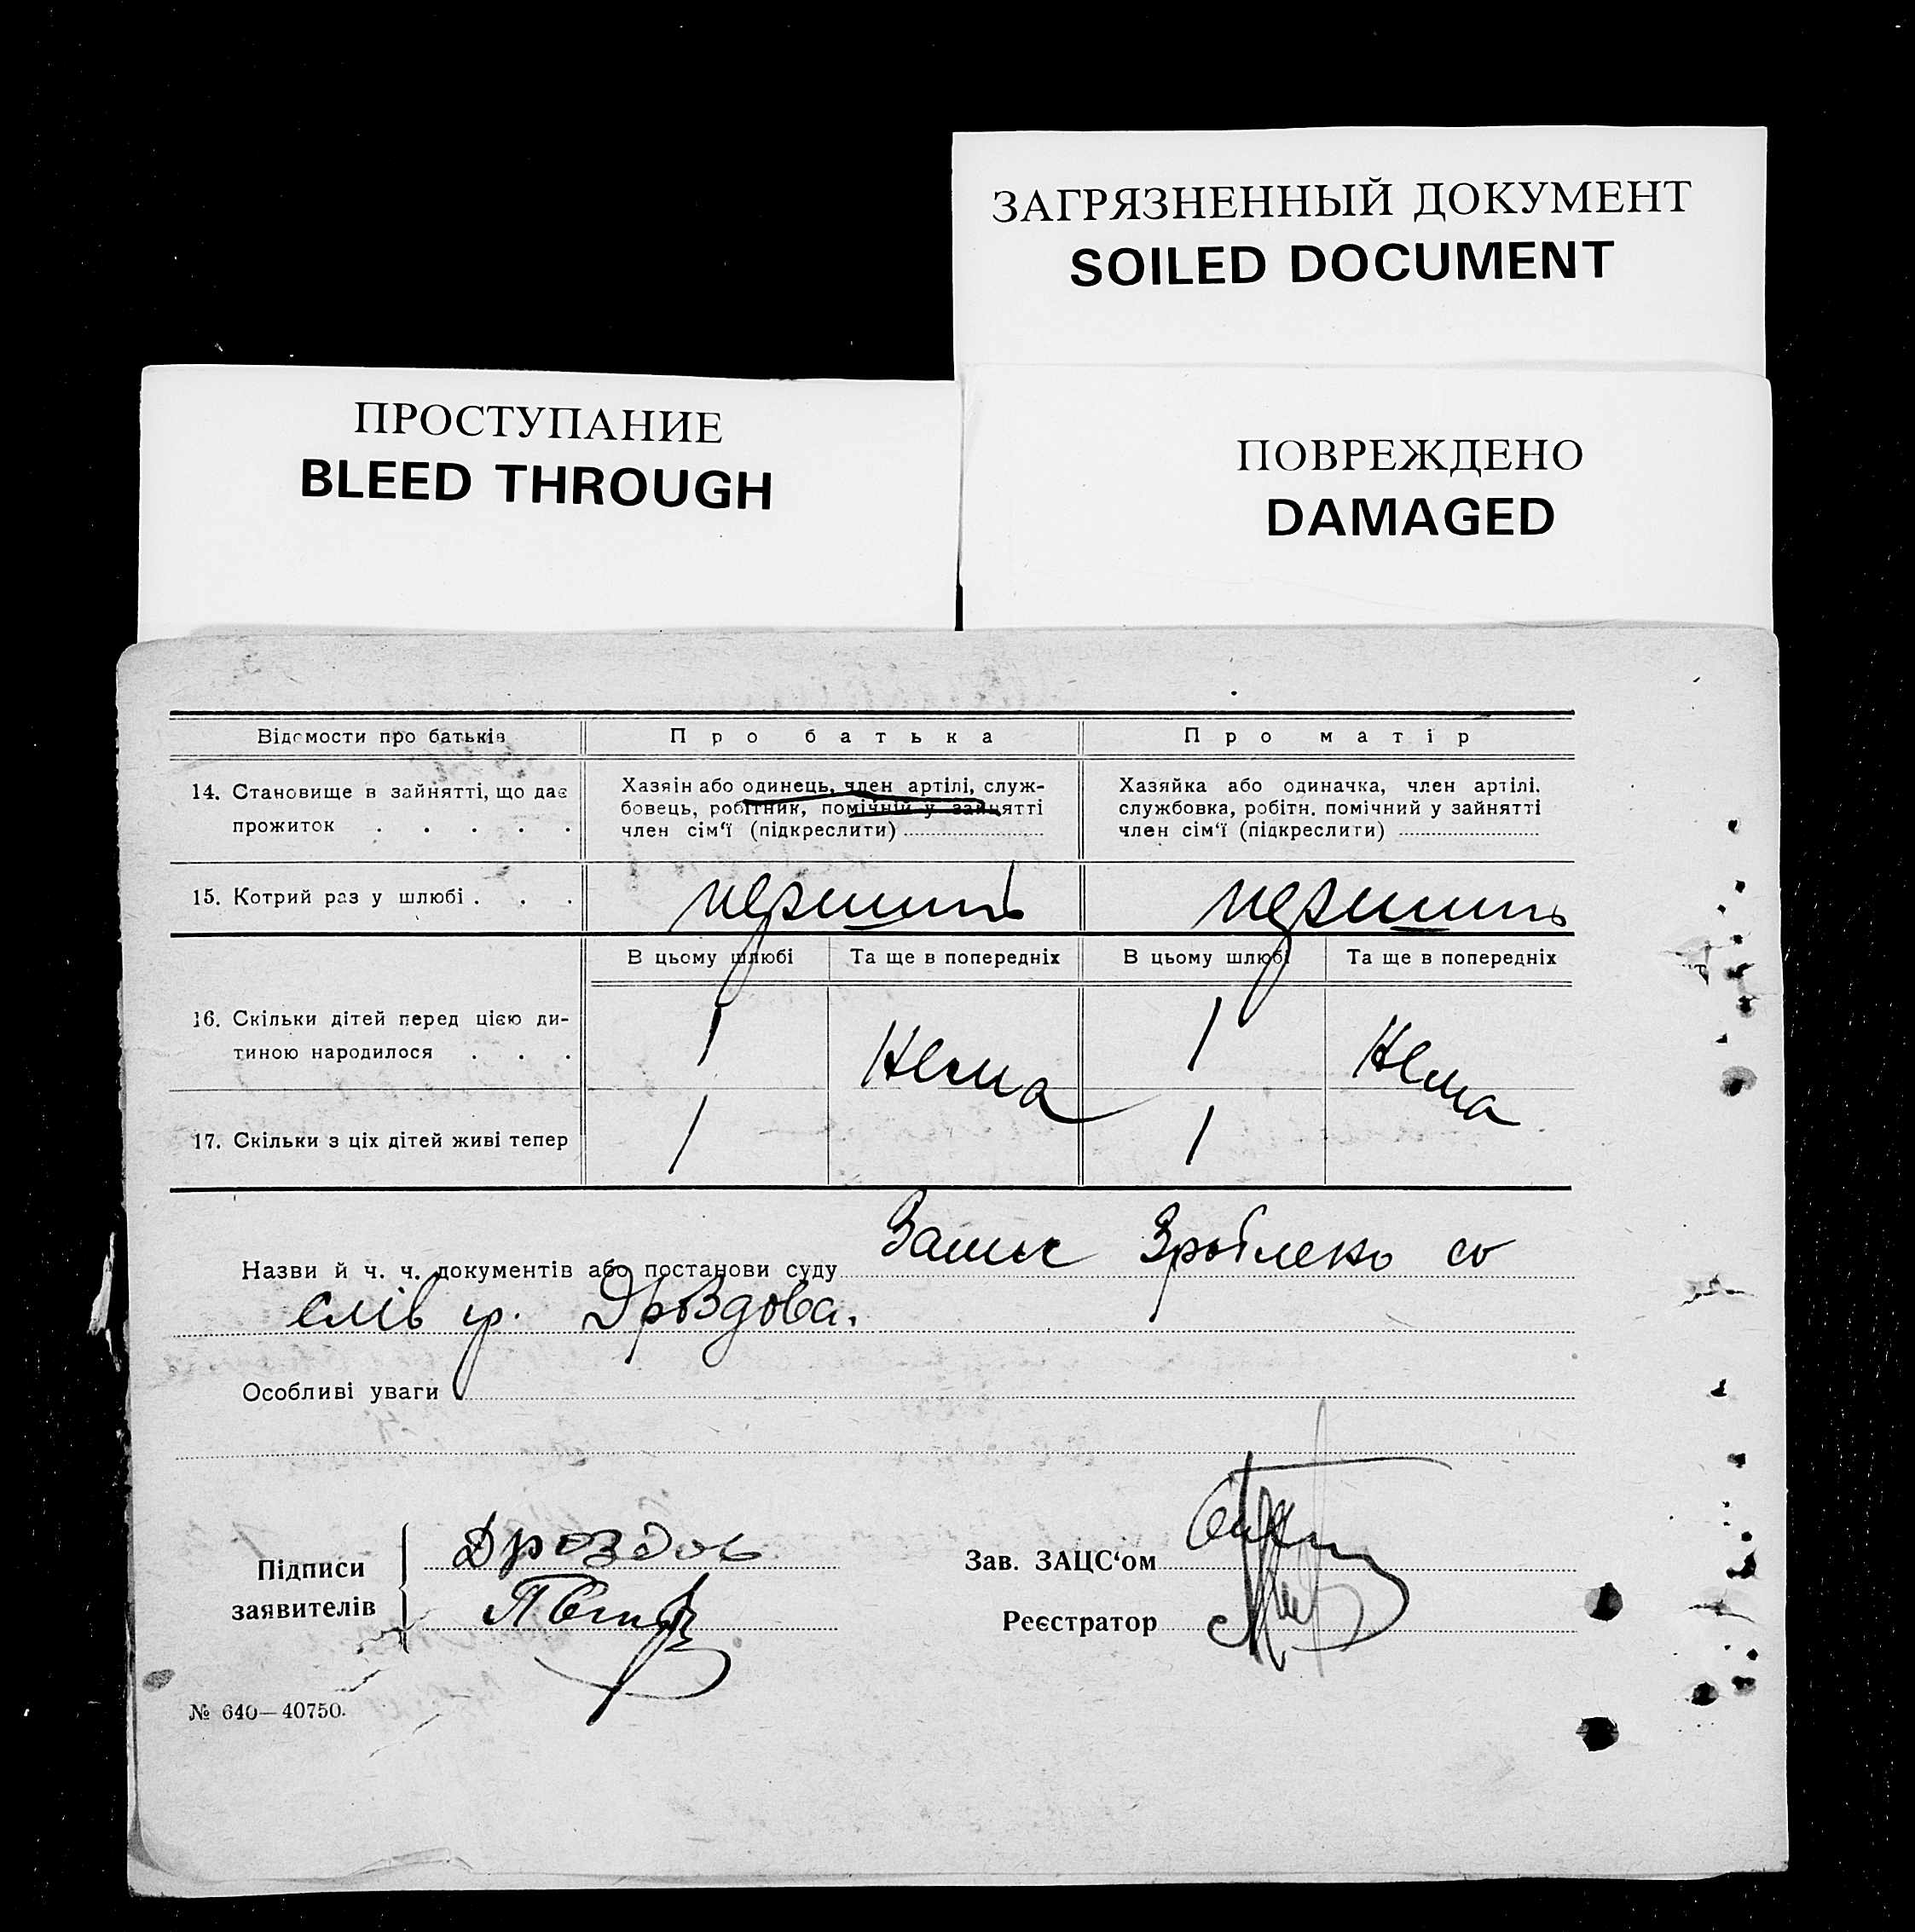 ЗАГРЯЗНЕННЫЙ ДОКУМЕНТ
SOILED DOCUMENT
ПРОСТУПАНИЕ
BLEED THROUGH
ПОВРЕЖДЕНО
DAMAGED
Відомости про батьків
Про батька
Про матір
14. Становище в зайнятті, що дає
прожиток . . . . .
Хазяїн або одинець, член артілі, служ-
бовець, робітник, помічний у зайнятті
член сім'ї (підкреслити)
Хазяйка або одиначка, член артілі,
службовка, робітн. помічний у зайнятті
член сім'ї (підкреслити)
15. Котрий раз у шлюбі . . .
перший
перший
В цьому шлюбі
Та ще в попередніх
В цьому шлюбі
Та ще в попередніх
16. Скільки дітей перед цією ди-
тиною народилося . . .
1
Нема
1
Нема
17. Скільки з ціх дітей живі тепер
1
1
Назви й ч. ч. документів або постанови суду Запис Зроблено со
слів гр. Дроздова.
Особливі уваги
Підписи
заявителів
Дроздов
Зав. ЗАЦС'ом
Реєстратор
№ 640—40750.